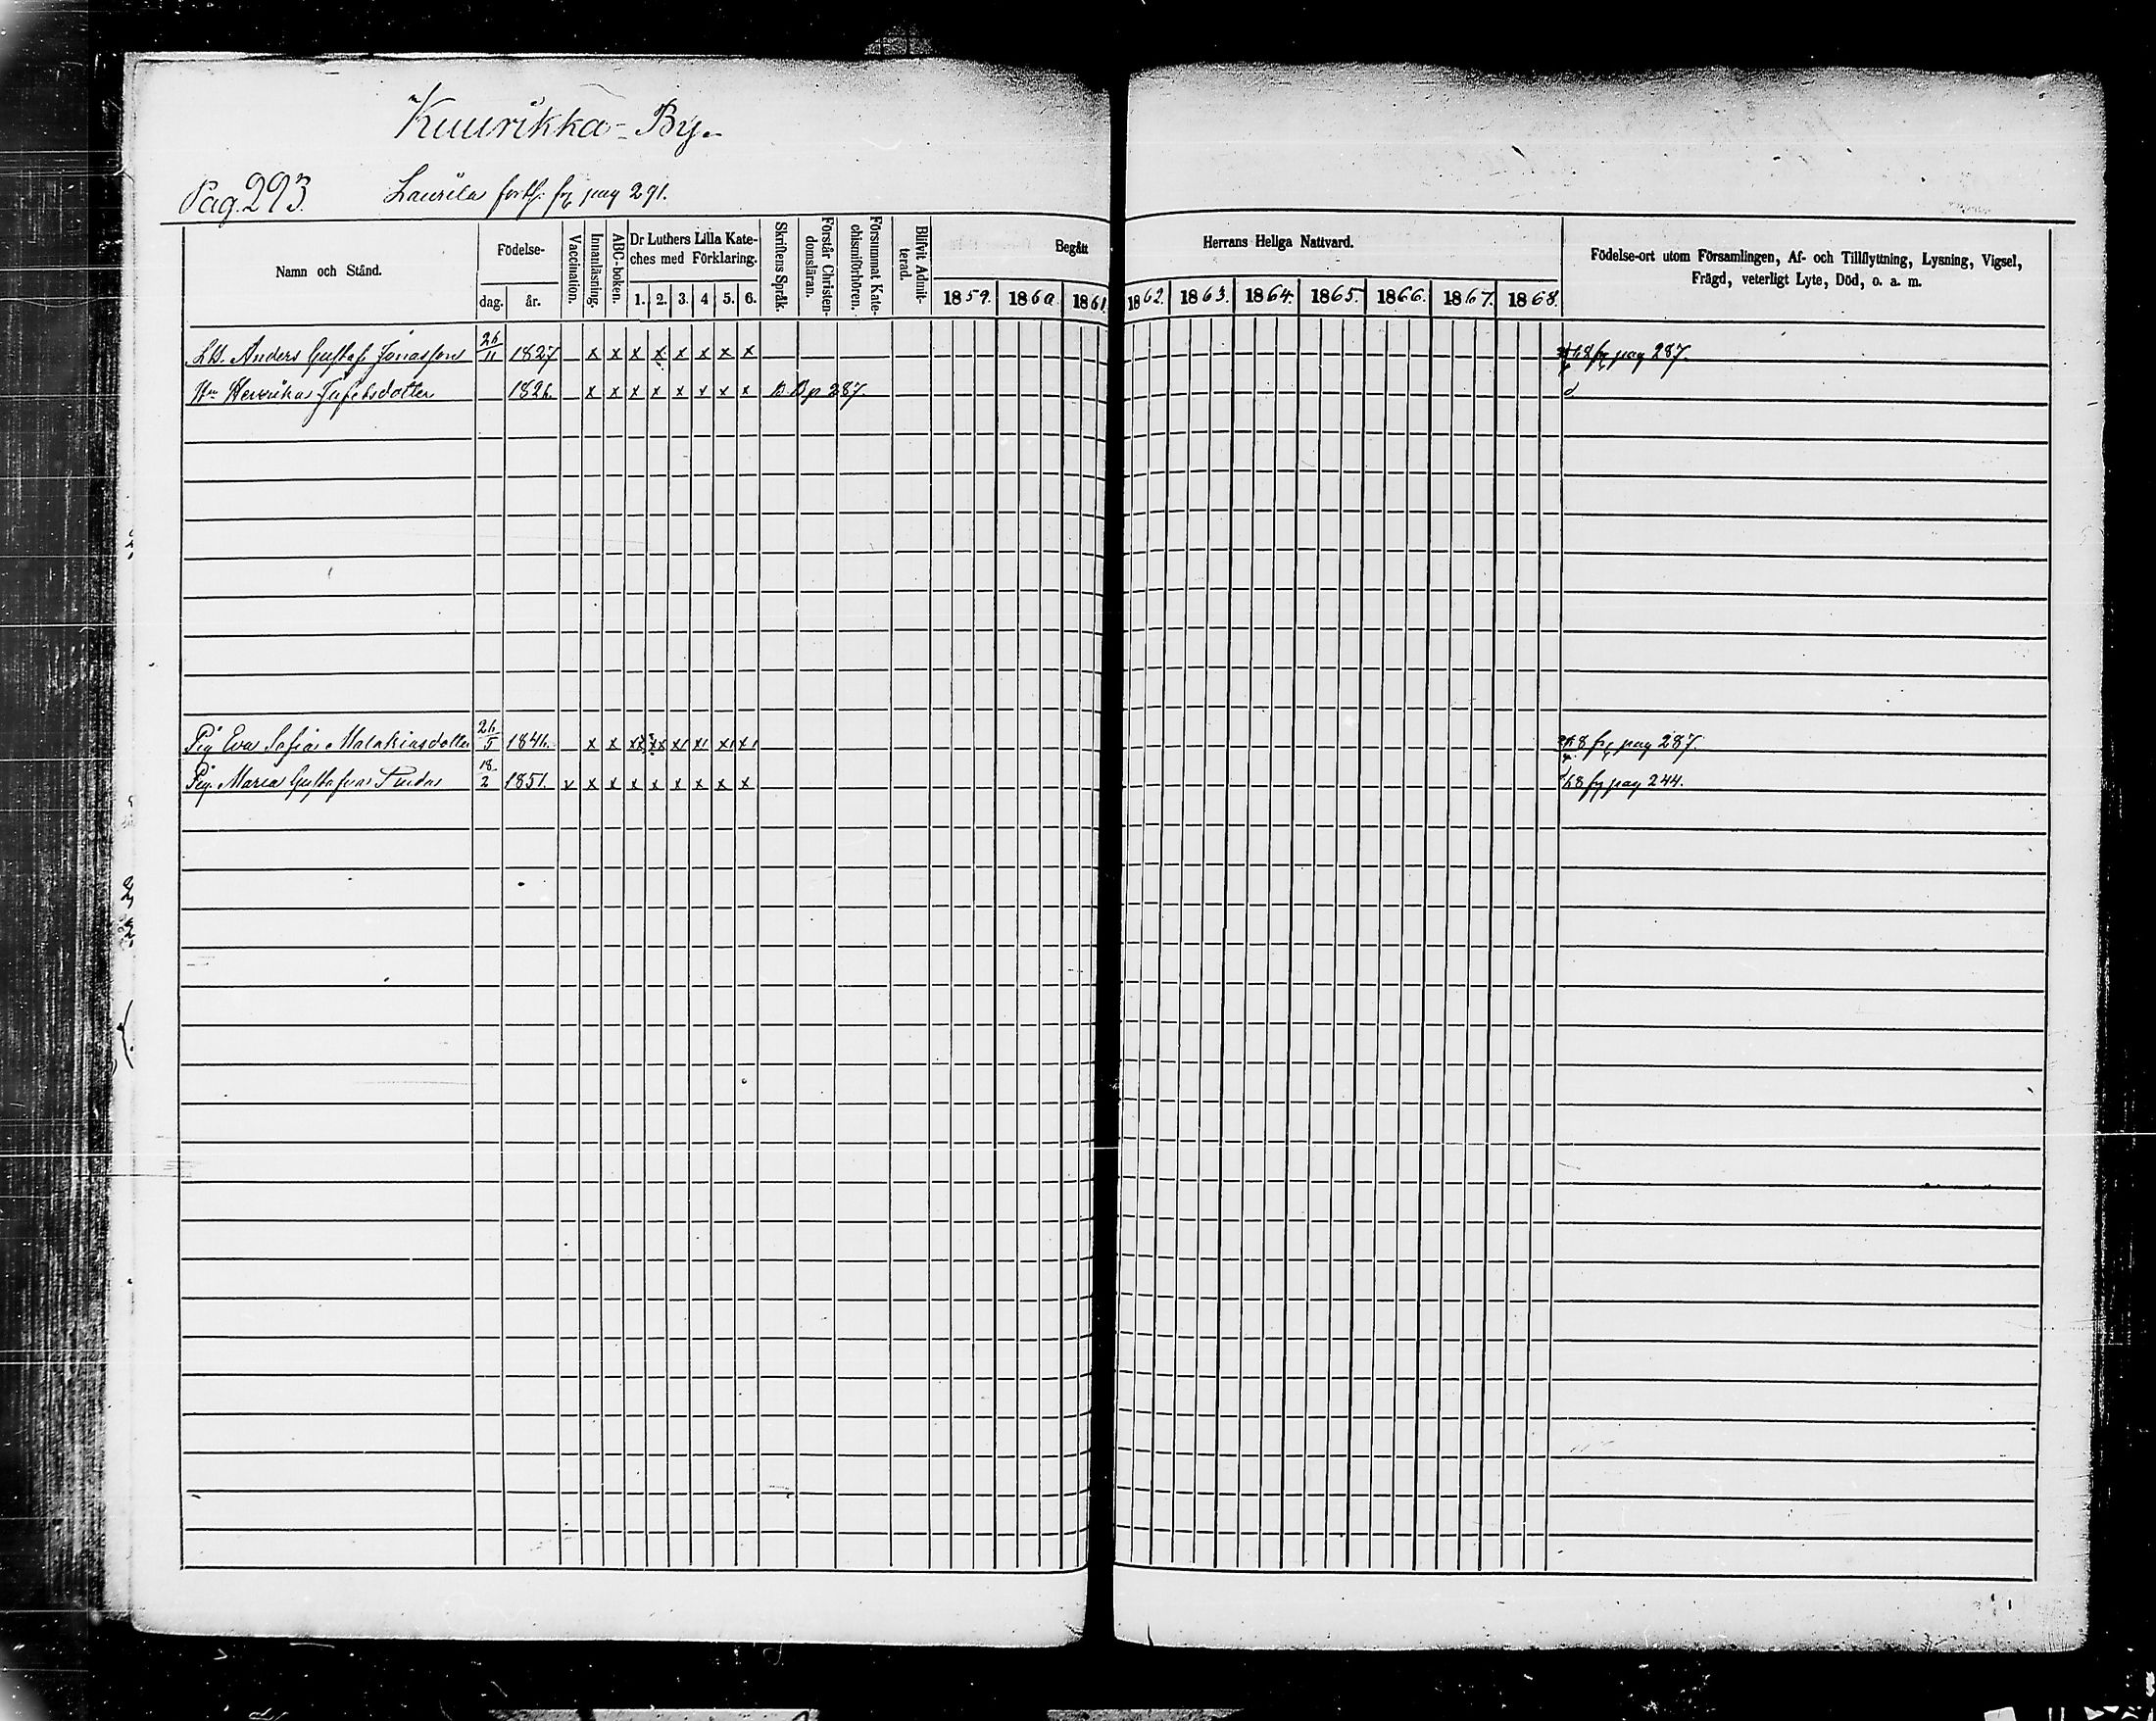 Kuurikka - By.
Pag. 293.
Laurila forts. fr. pag 291.
Namn och Stånd.
Födelse-
dag.
år.
Vaccination.
Innanläsning.
ABC-boken.
Dr Luthers Lilla Kate-
ches med Förklaring.
1. 2. 3. 4 5. 6.
Skriftens Språk.
Förstår Christen-
domsläran.
Försummat Kate-
chismiförhören.
Blifvit Admit-
terad.
Begått Herrans Heliga Nattvard.
1859. 1860 1861. 1862. 1863. 1864. 1865. 1866. 1867. 1868.
Födelse-ort utom Församlingen, Af- och Tillflyttning, Lysning, Vigsel,
Frägd, veterligt Lyte, Död, o. a. m.
Anders Gustaf Jonasson 26/11 1827 x x x x x x x x 68 fr pag 287.
Hu Henrika Josefsdotter 1826. x x x x x x x x B. B p 287. d
Pig Eva Sofia Malakiasdotter 26/5 1846. x x xx xx x1 x1 x1 x1 68 fr pag 287.
Pig. Maria Gustafva 18/2 1851. v x x x x x x x x 68 fr pag 244.